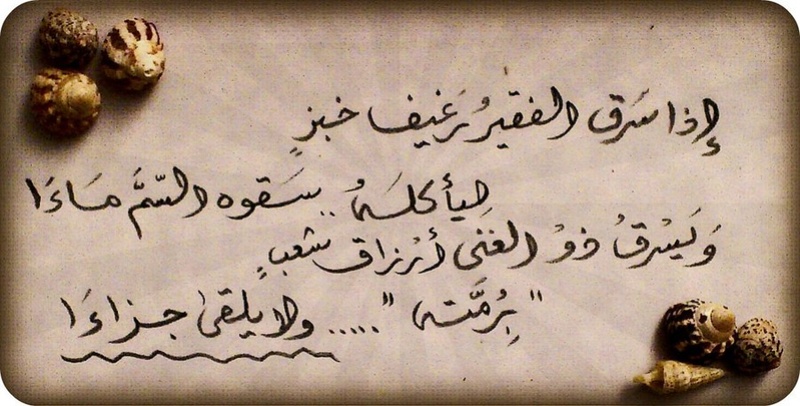 إذا سَرق الفقيرُ رَغيف خبزٍ
ليأكلَهُ .. سَقوه السّمَّ مَاءَا
وَيَسْرقُ ذوْ الغنى أرْزاق شعبٍ
"بِرُمَّته" ..... ولا يلقىٰ جزاءَا